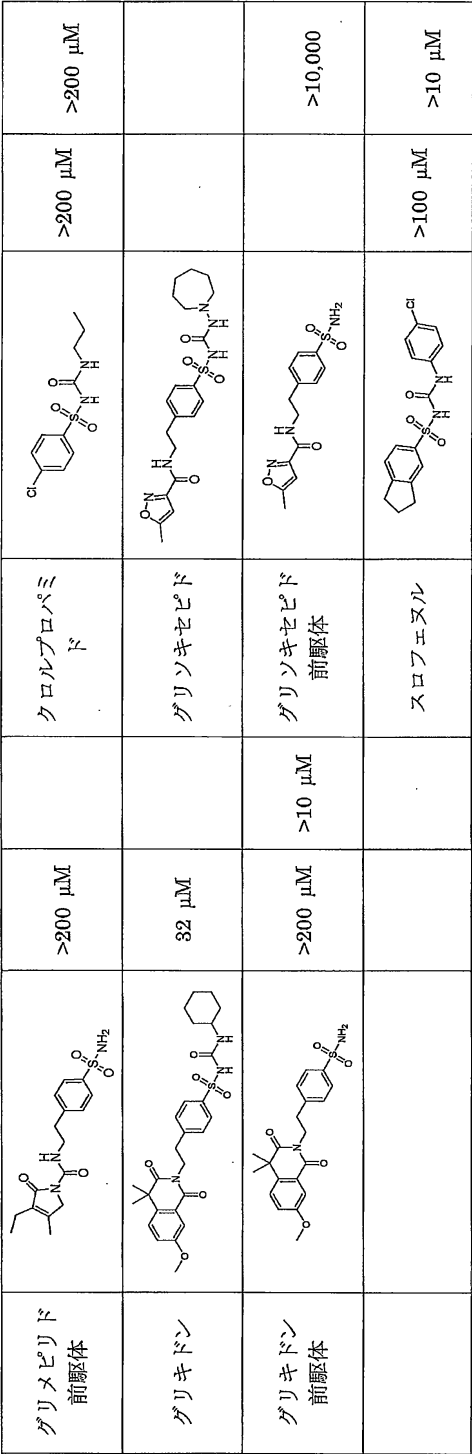 グリメピリド
前駆体
>200 μM
クロルプロパミ
ド
>200 μM
>200 μM
グリキドン
32 μM
グリソキセピド
グリキドン
前駆体
>200 μM
>10 μM
グリソキセピド
前駆体
>10,000
スロフェヌル
>100 μM
>10 μM